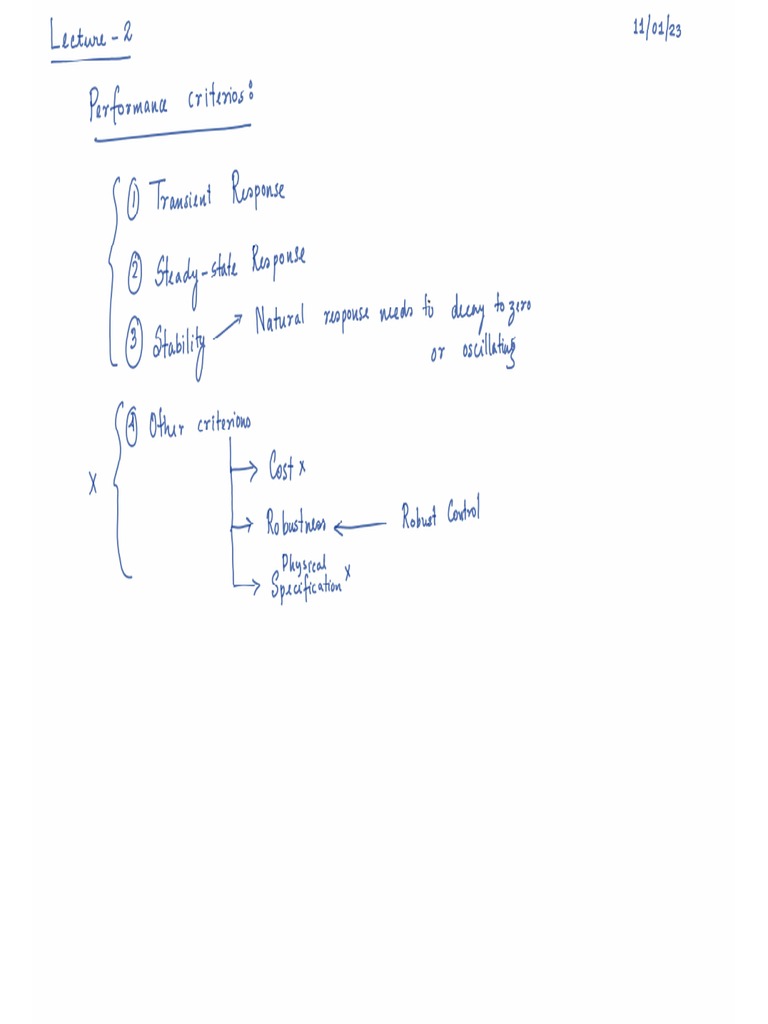 Lecture - 2
11/01/23
Performance criterios:
① Transient Response
② Steady-state Response
③ Stability
Natural response needs to decay to zero
or oscillating
④ Other criterions
X
Cost x
Robustness
Robust Control
Physical
Specification x